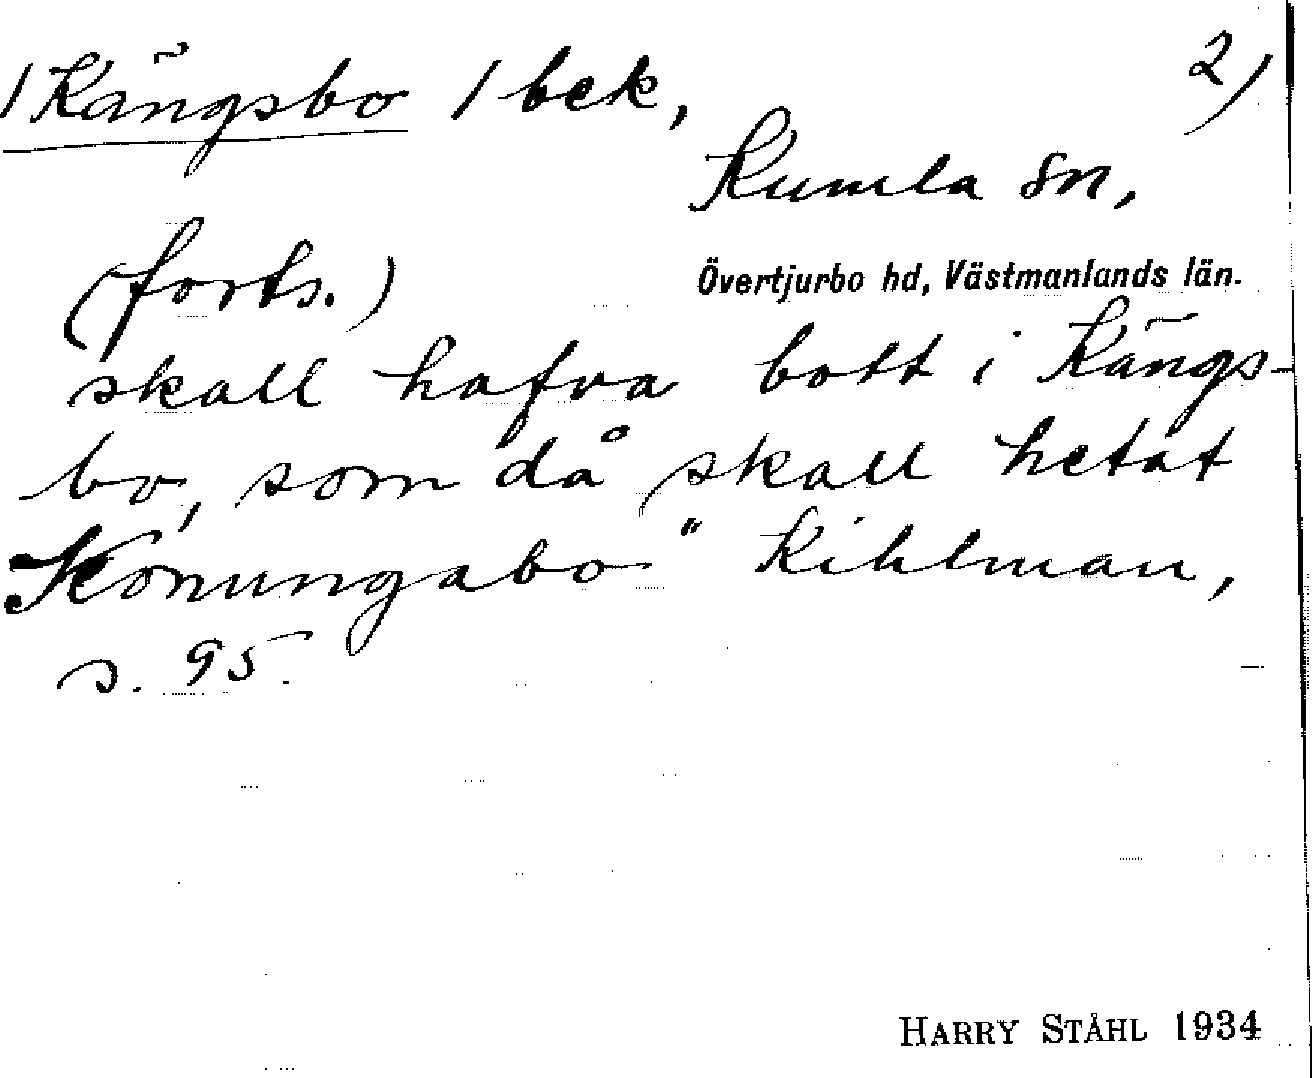 / Kängsbo / bek, 2)
Kumla sn,
(forts.)
Övertjurbo hd, Västmanlands län.
skall hafva bott i Kängs-
bo, som då skall hetat
Konungabo" Kihlman,
s. 95.
HARRY STÅHL 1934